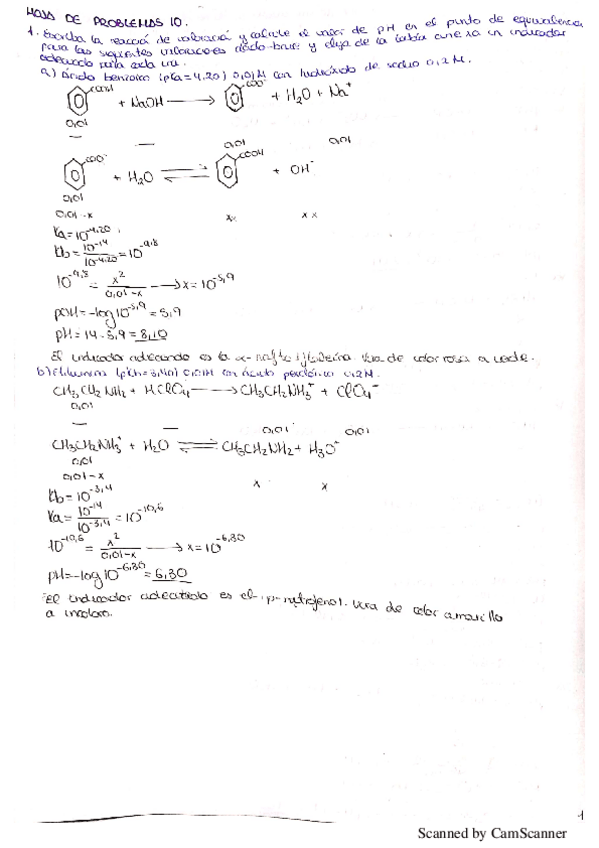 HOJA DE PROBLEMAS 10.
1. Escriba la reacción de valoración y calcule el valor de pH en el punto de equivalencia
para las siguientes valoraciones ácido-base y elija de la tabla anexa un indicador
adecuado para cada una.
a) Ácido benzoico (pKa = 4,20) 0,01M con hidróxido de sodio 0,2M.
COOH + NaOH → COO⁻ + H₂O + Na⁺
0,01
— — 0,01 0,01
COO⁻ + H₂O ⇌ COOH + OH⁻
0,01
0,01-x x x
Ka = 10^-4,20
Kb = 10^-14 / 10^-4,20 = 10^-9,8
10^-9,8 = x² / 0,01-x → x = 10^-5,9
pOH = -log 10^-5,9 = 5,9
pH = 14 - 5,9 = 8,10
El indicador adecuado es la α-naftolftaleína. Vira de color rosa a verde.
b) Etilamina (pKb = 3,40) 0,01M con ácido perclórico 0,2M.
CH₃CH₂NH₂ + HClO₄ → CH₃CH₂NH₃⁺ + ClO₄⁻
0,01
— — 0,01 0,01
CH₃CH₂NH₃⁺ + H₂O ⇌ CH₃CH₂NH₂ + H₃O⁺
0,01
0,01-x x x
Kb = 10^-3,4
Ka = 10^-14 / 10^-3,4 = 10^-10,6
10^-10,6 = x² / 0,01-x → x = 10^-6,30
pH = -log 10^-6,30 = 6,30
El indicador adecuado es el p-nitrofenol. Vira de color amarillo
a incoloro.
1
Scanned by CamScanner